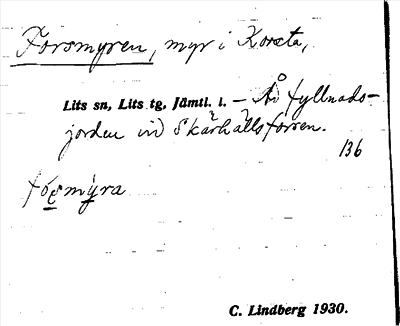 Forsmyren, myr i Korsta,
Lits sn, Lits tg, Jämtl. l. – Är fyllnads-
jorden vid Skärhällsforsen.
136
C. Lindberg 1930.